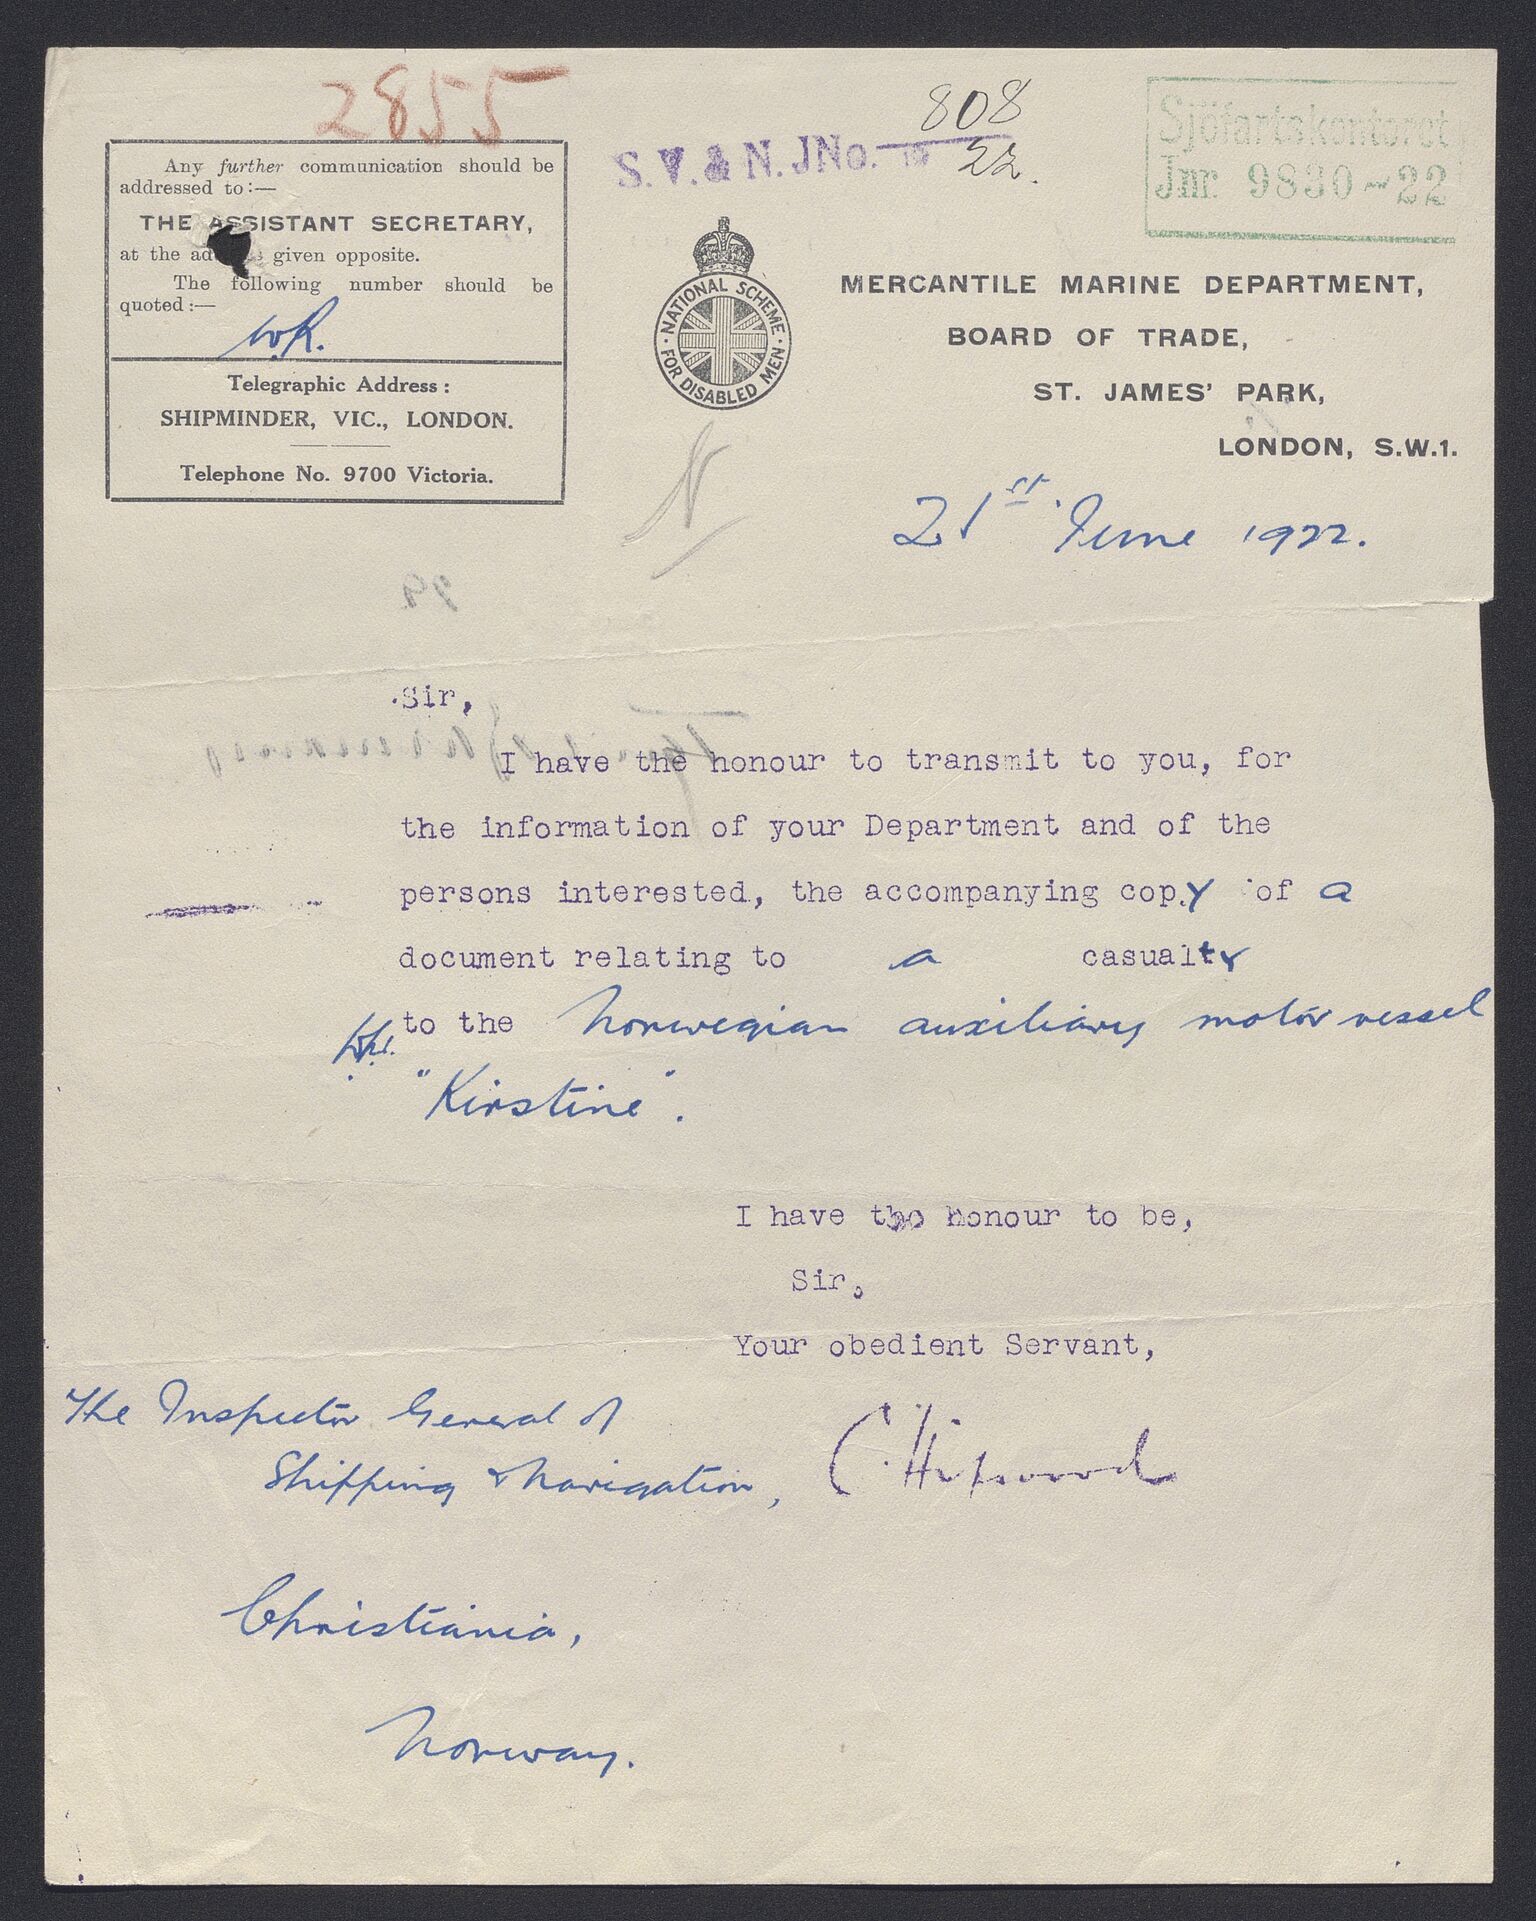 2855
808
S. V. & N. JNo. 19 22.
Sjöfartskontoret
Jnr. 9830~22
Any further communication should be
addressed to:—
THE ASSISTANT SECRETARY,
at the ad given opposite.
The following number should be
quoted:—
W.R.
Telegraphic Address:
SHIPMINDER, VIC., LONDON.
Telephone No. 9700 Victoria.
NATIONAL SCHEME
FOR DISABLED MEN
MERCANTILE MARINE DEPARTMENT,
BOARD OF TRADE,
ST. JAMES' PARK,
LONDON, S.W.1.
21st June 1922.
Sir,
I have the honour to transmit to you, for
the information of your Department and of the
persons interested, the accompanying copy of a
document relating to a casualty
to the Norwegian auxiliary motor vessel
"Kirstine".
I have the honour to be,
Sir,
Your obedient Servant,
C. Hipwood
The Inspector General of
Shipping & Navigation,
Christiania,
Norway.